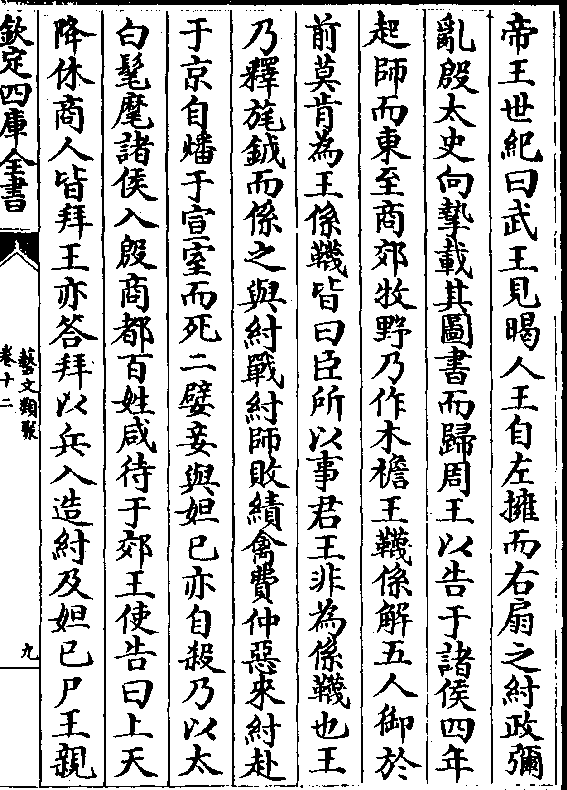 帝王世紀曰武王見暍人王自左擁而右扇之紂政彌
亂殷太史向摯載其圖書而歸周王以告于諸侯四年
起師而東至商郊牧野乃作木襜王韈係解五人御於
前莫肯為王係韈皆曰臣所以事君王非為係韈也王
乃釋旄鉞而係之與紂戰紂師敗績禽費仲惡來紂赴
于京自燔于宣室而死二嬖妾與妲已亦自殺乃以太
白髦麾諸侯入殷商都百姓咸待于郊王使告曰上天
降休商人皆拜王亦答拜以兵入造紂及妲已尸王親
欽定四庫全書
藝文類聚
卷十二
九